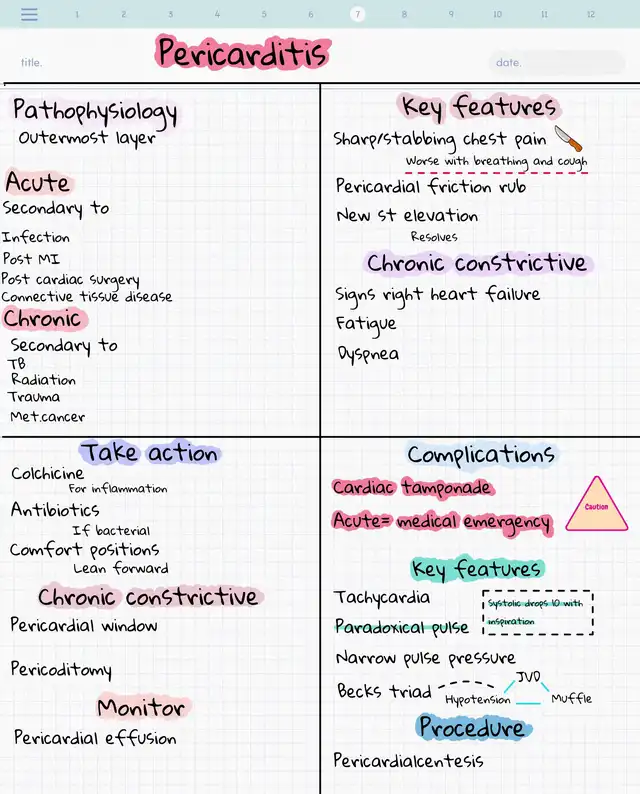 1 2 3 4 5 6 7 8 9 10 11 12
title.
Pericarditis
date.
Pathophysiology
Outermost layer
Acute
Secondary to
Infection
Post MI
Post cardiac surgery
Connective tissue disease
Chronic
Secondary to
TB
Radiation
Trauma
Met.cancer
Key features
Sharp/stabbing chest pain
Worse with breathing and cough
Pericardial friction rub
New st elevation
Resolves
Chronic constrictive
Signs right heart failure
Fatigue
Dyspnea
Take action
Colchicine
For inflammation
Antibiotics
If bacterial
Comfort positions
Lean forward
Chronic constrictive
Pericardial window
Pericoditomy
Monitor
Pericardial effusion
Complications
Cardiac tamponade
Acute= medical emergency
Caution
Key features
Tachycardia
Paradoxical pulse
Systolic drops 10 with
inspiration
Narrow pulse pressure
Becks triad
JVD
Hypotension
Muffle
Procedure
Pericardialcentesis